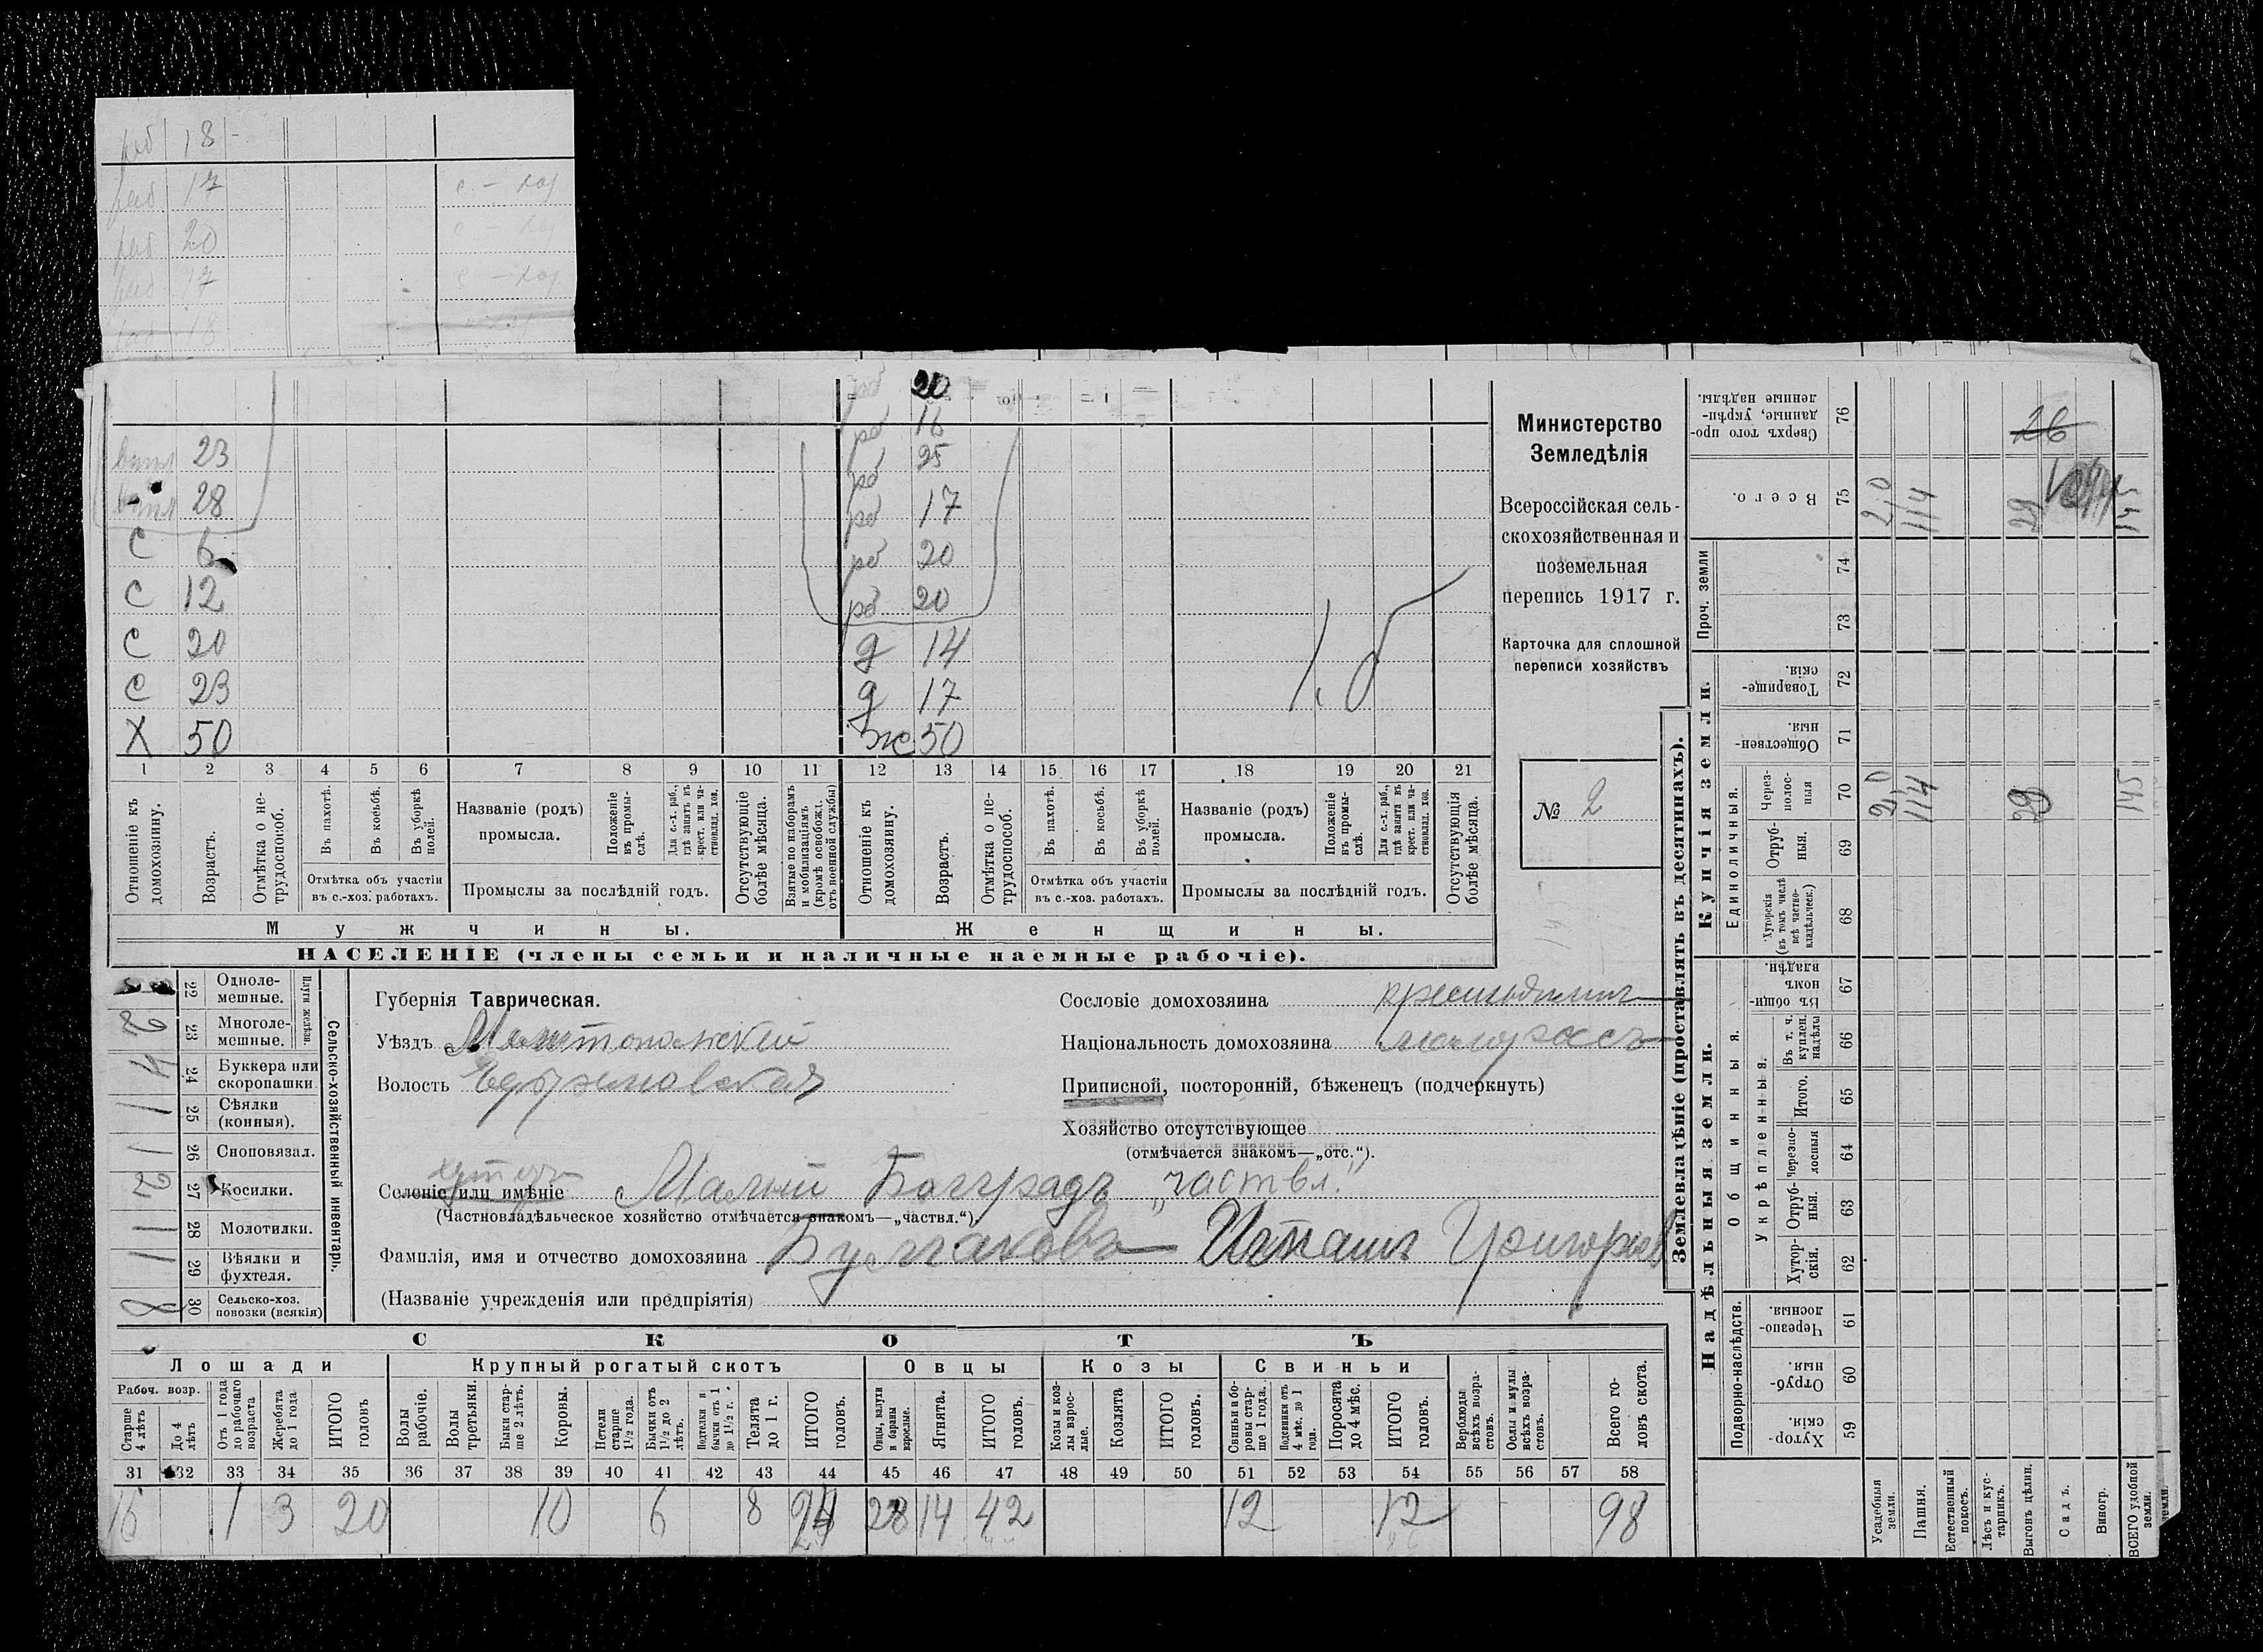 раб 18 -
раб 17 с. - хоз
раб 20 с - хоз
раб 17 с - хоз
18
20
рб 16
23 рб 25
28 рб 17
С 6 рб 20
С 12 рб 20
С 20 д 14
С 23 д 17
Х 50 Ж 50
1 2 3 4 5 6 7 8 9 10 11 12 13 14 15 16 17 18 19 20 21
Отношеніе къ домохозяину.
Возрастъ.
Отмѣтка о не-трудоспособ.
Въ пахотѣ.
Въ косьбѣ.
Въ уборкѣ полей.
Отмѣтка объ участіи въ с.-хоз. работахъ.
Названіе (родъ) промысла.
Положеніе въ промы-слѣ.
Для с.-х. раб., гдѣ занятъ въ крест. или ча-стновлад. хоз.
Промыслы за послѣдній годъ.
Отсутствующіе болѣе мѣсяца.
Взятые по наборамъ и мобилизаціямъ (кромѣ освобожд. отъ военной службы)
Отношеніе къ домохозяину.
Возрастъ.
Отмѣтка о не-трудоспособ.
Въ пахотѣ.
Въ косьбѣ.
Въ уборкѣ полей.
Отмѣтка объ участіи въ с.-хоз. работахъ.
Названіе (родъ) промысла.
Положеніе въ промы-слѣ.
Для с.-х. раб., гдѣ занята въ крест. или ча-стновлад. хоз.
Промыслы за послѣдній годъ.
Отсутствующія болѣе мѣсяца.
Мужчины. Женщины.
НАСЕЛЕНІЕ (члены семьи и наличные наемные рабочіе).
Министерство
Земледѣлія
Всероссійская сель-
скохозяйственная и
поземельная
перепись 1917 г.
Карточка для сплошной
переписи хозяйствъ
№ 2
Плуги желѣзн.
22 Одноле-мешные.
2 23 Многоле-мешные.
4 24 Буккера или скоропашки.
1 25 Сѣялки (конныя).
1 26 Сноповязал.
2 27 Косилки.
1 28 Молотилки.
1 29 Вѣялки и фухтеля.
8 30 Сельско-хоз. повозки (всякія)
Сельско-хозяйственный инвентарь.
Губернія Таврическая.
Уѣздъ Мелитопольскій
Волость
Сословіе домохозяина крестьянинъ
Національность домохозяина малороссъ
Приписной, посторонній, бѣженецъ (подчеркнуть)
Хозяйство отсутствующее
(отмѣчается знакомъ—„отс.“).
хуторъ
Селеніе или имѣніе Малый Богградъ „частвл.“
(Частновладѣльческое хозяйство отмѣчается знакомъ—„частвл.“).
Фамилія, имя и отчество домохозяина Булгаковъ Игнатъ Григорьев
(Названіе учрежденія или предпріятія)
СКОТЪ
Лошади Крупный рогатый скотъ Овцы Козы Свиньи
Рабоч. возр.
Старше 4 лѣтъ
До 4 лѣтъ
Отъ 1 года до рабочаго возраста
Жеребята до 1 года
ИТОГО головъ
Волы рабочіе.
Волы третьяки.
Быки стар-ше 2 лѣтъ.
Коровы.
Нетели старше 1½ года.
Бычки отъ 1½ до 2 лѣтъ.
Подтелки и бычки отъ 1 до 1½ г.
Телята до 1 г.
ИТОГО головъ.
Овцы, валухи и бараны взрослые.
Ягнята.
ИТОГО головъ.
Козы и коз-лы взрос-лые.
Козлята
ИТОГО головъ.
Свиньи и бо-ровы стар-ше 1 года.
Подсвинки отъ 4 мѣс. до 1 года.
Поросята до 4 мѣс.
ИТОГО головъ.
Верблюды всѣхъ возра-стовъ.
Ослы и мулы всѣхъ возра-стовъ.
Всего го-ловъ скота.
31 32 33 34 35 36 37 38 39 40 41 42 43 44 45 46 47 48 49 50 51 52 53 54 55 56 57 58
16 1 3 20 10 6 8 24 28 14 42 12 12 98
Землевладѣніе (проставлять въ десятинахъ).
Надѣльныя земли. Купчія земли. Проч. земли
Подворно-наслѣдств.
Общинныя.
Укрѣпленныя.
Единоличныя.
59 Хутор-скія.
60 Отруб-ныя.
61 Черезпо-лосныя.
62 Хутор-скія.
63 Отруб-ныя.
64 Черезпо-лосныя
65 Итого.
66 Въ т. ч. куплен. надѣлы
67 Въ общин-номъ владѣн.
68 Хуторскія (въ томъ числѣ всѣ частно-владѣльческ.)
69 Отруб-ныя.
70 Через-полос-ныя
71 Обществен-ныя.
72 Товарище-скія.
73
74
75 Всего.
76 Сверхъ того про-данные, укрѣп-ленные надѣлы.
Усадебныя земли. 2,0 2,0
Пашня. 114 114
Естественный покосъ.
Лѣсъ и кус-тарникъ.
Выгонъ цѣлин. 29 29 26
Садъ.
Виногр.
ВСЕГО удобной земли. 145 145